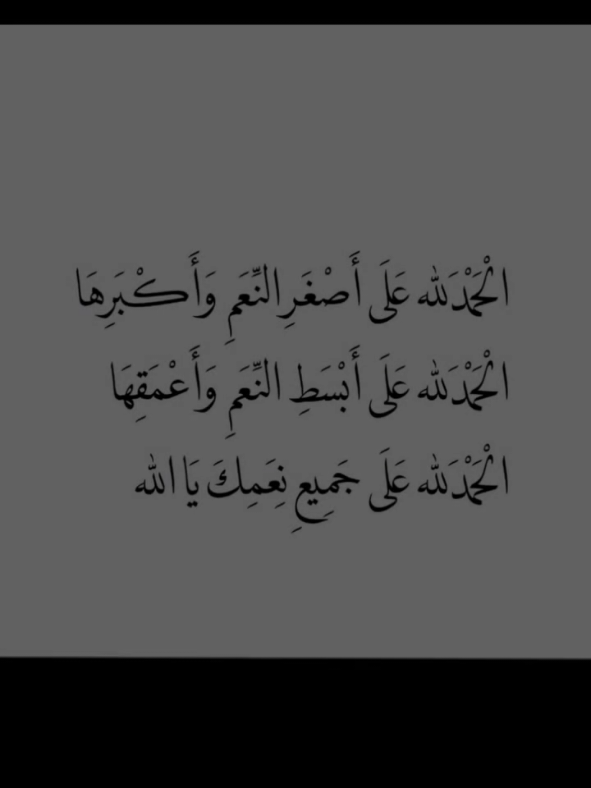 الْحَمْدَلله عَلَى أَصْغَرِ النِّعَمِ وَأَكْبَرِهَا
الْحَمْدَلله عَلَى أَبْسَطِ النِّعَمِ وَأَعْمَقِهَا
الْحَمْدَلله عَلَى جَمِيعِ نِعَمِكَ يَا الله